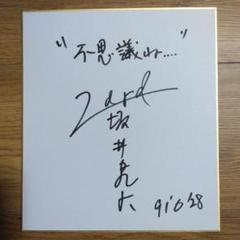 "不思議ね...."
Zard
坂井泉水
91'6 28